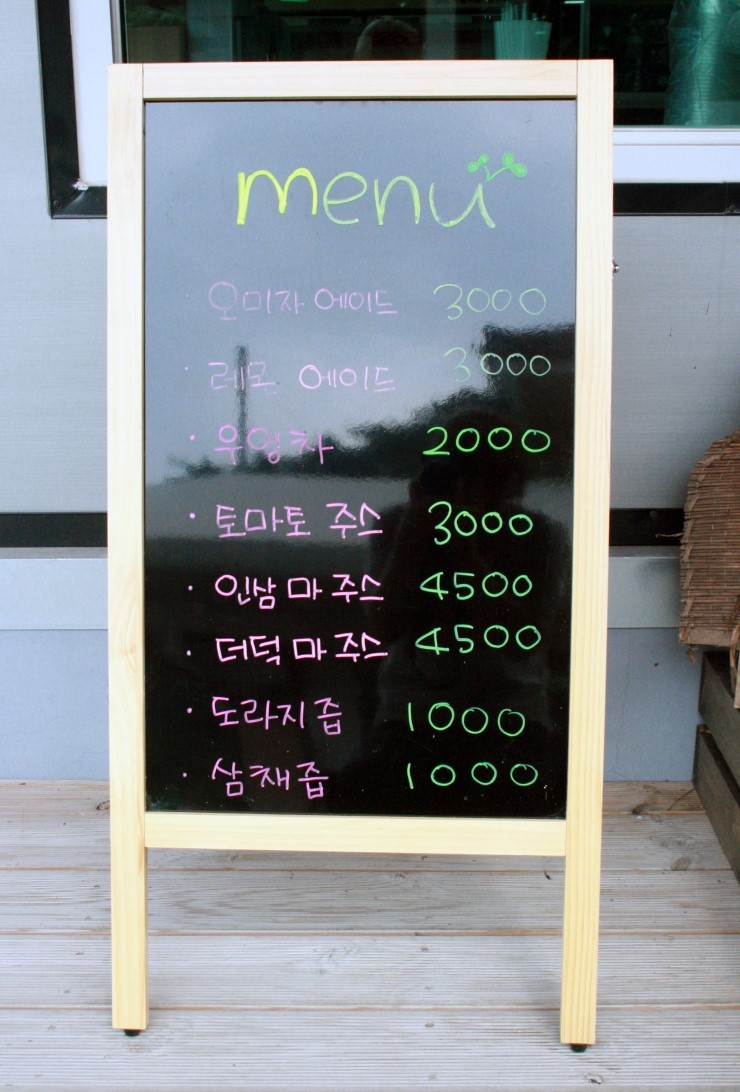 menu
오미자 에이드 3000
· 레몬 에이드 3000
· 우엉차 2000
· 토마토 주스 3000
· 인삼 마 주스 4500
· 더덕 마 주스 4500
· 도라지즙 1000
· 삼채즙 1000